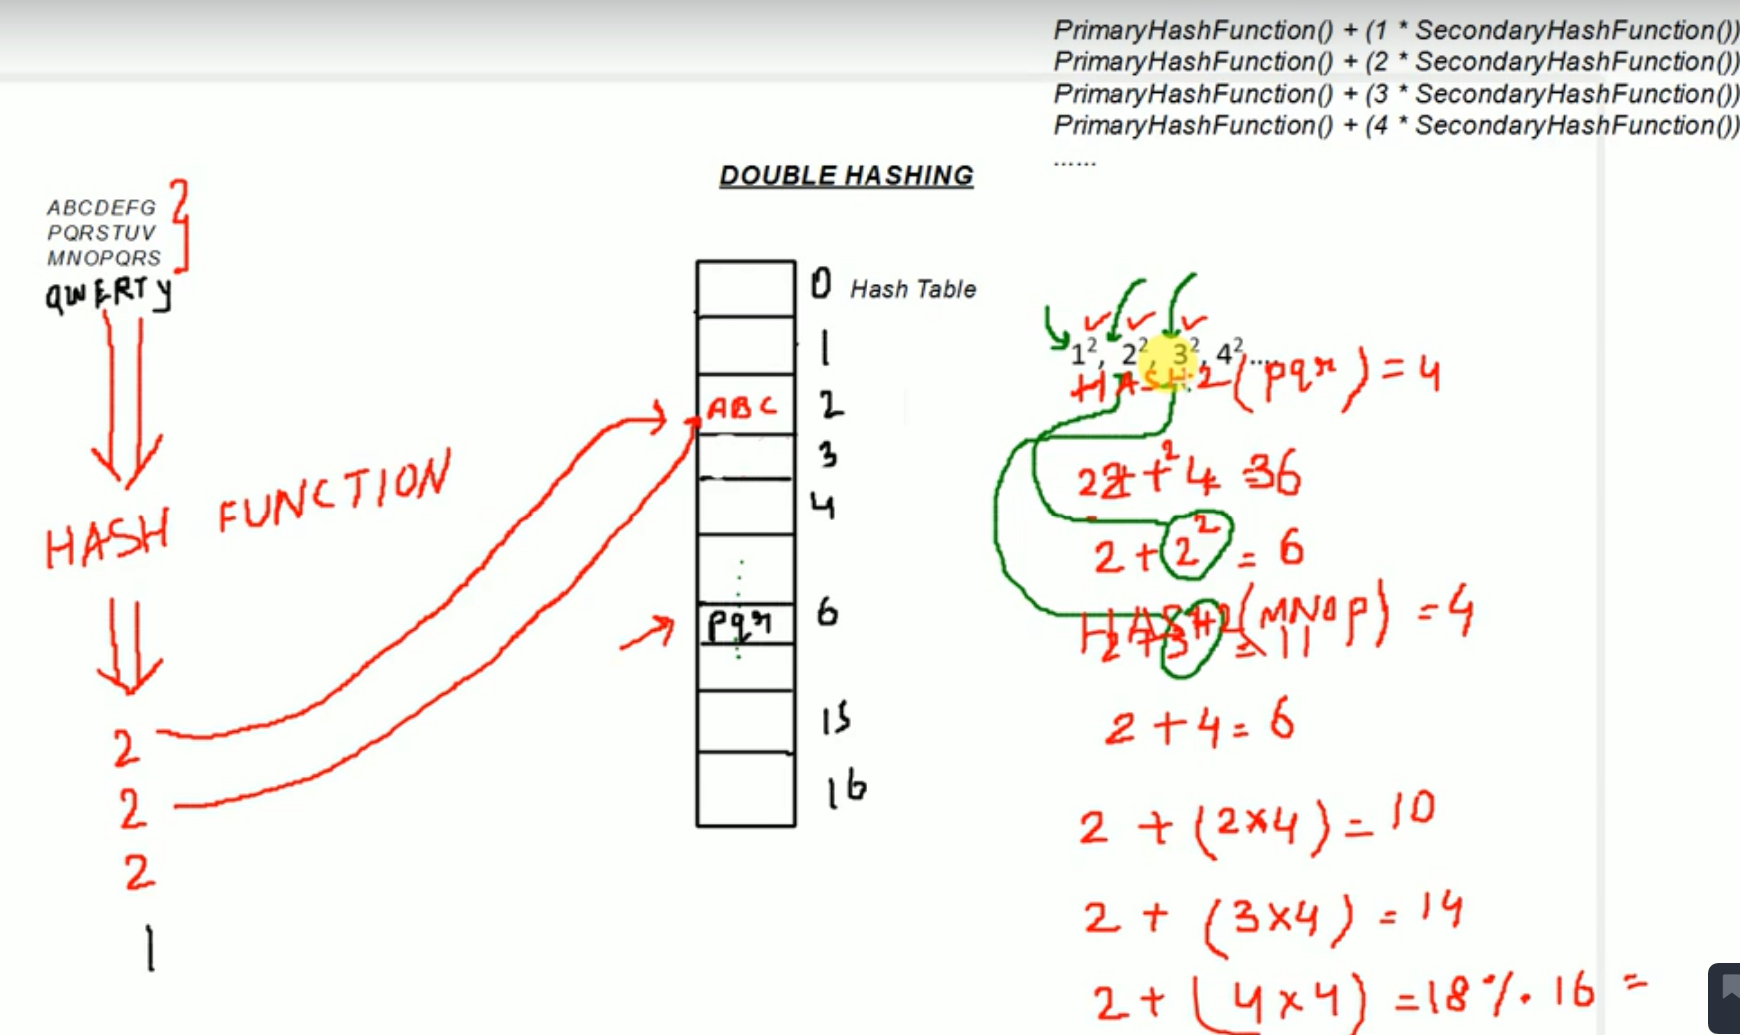 PrimaryHashFunction() + (1 * SecondaryHashFunction())
PrimaryHashFunction() + (2 * SecondaryHashFunction())
PrimaryHashFunction() + (3 * SecondaryHashFunction())
PrimaryHashFunction() + (4 * SecondaryHashFunction())
......
DOUBLE HASHING
ABCDEFG
PQRSTUV
MNOPQRS
QWERTY
HASH FUNCTION
2
2
2
1
0 Hash Table
1
ABC 2
3
4
pqr 6
15
16
1², 2², 3², 4²....
HASH2(pqr) = 4
36
2 + 2² = 6
(MNOP) = 4
11
2 + 4 = 6
2 + (2×4) = 10
2 + (3×4) = 14
2 + (4×4) = 18 % 16 =